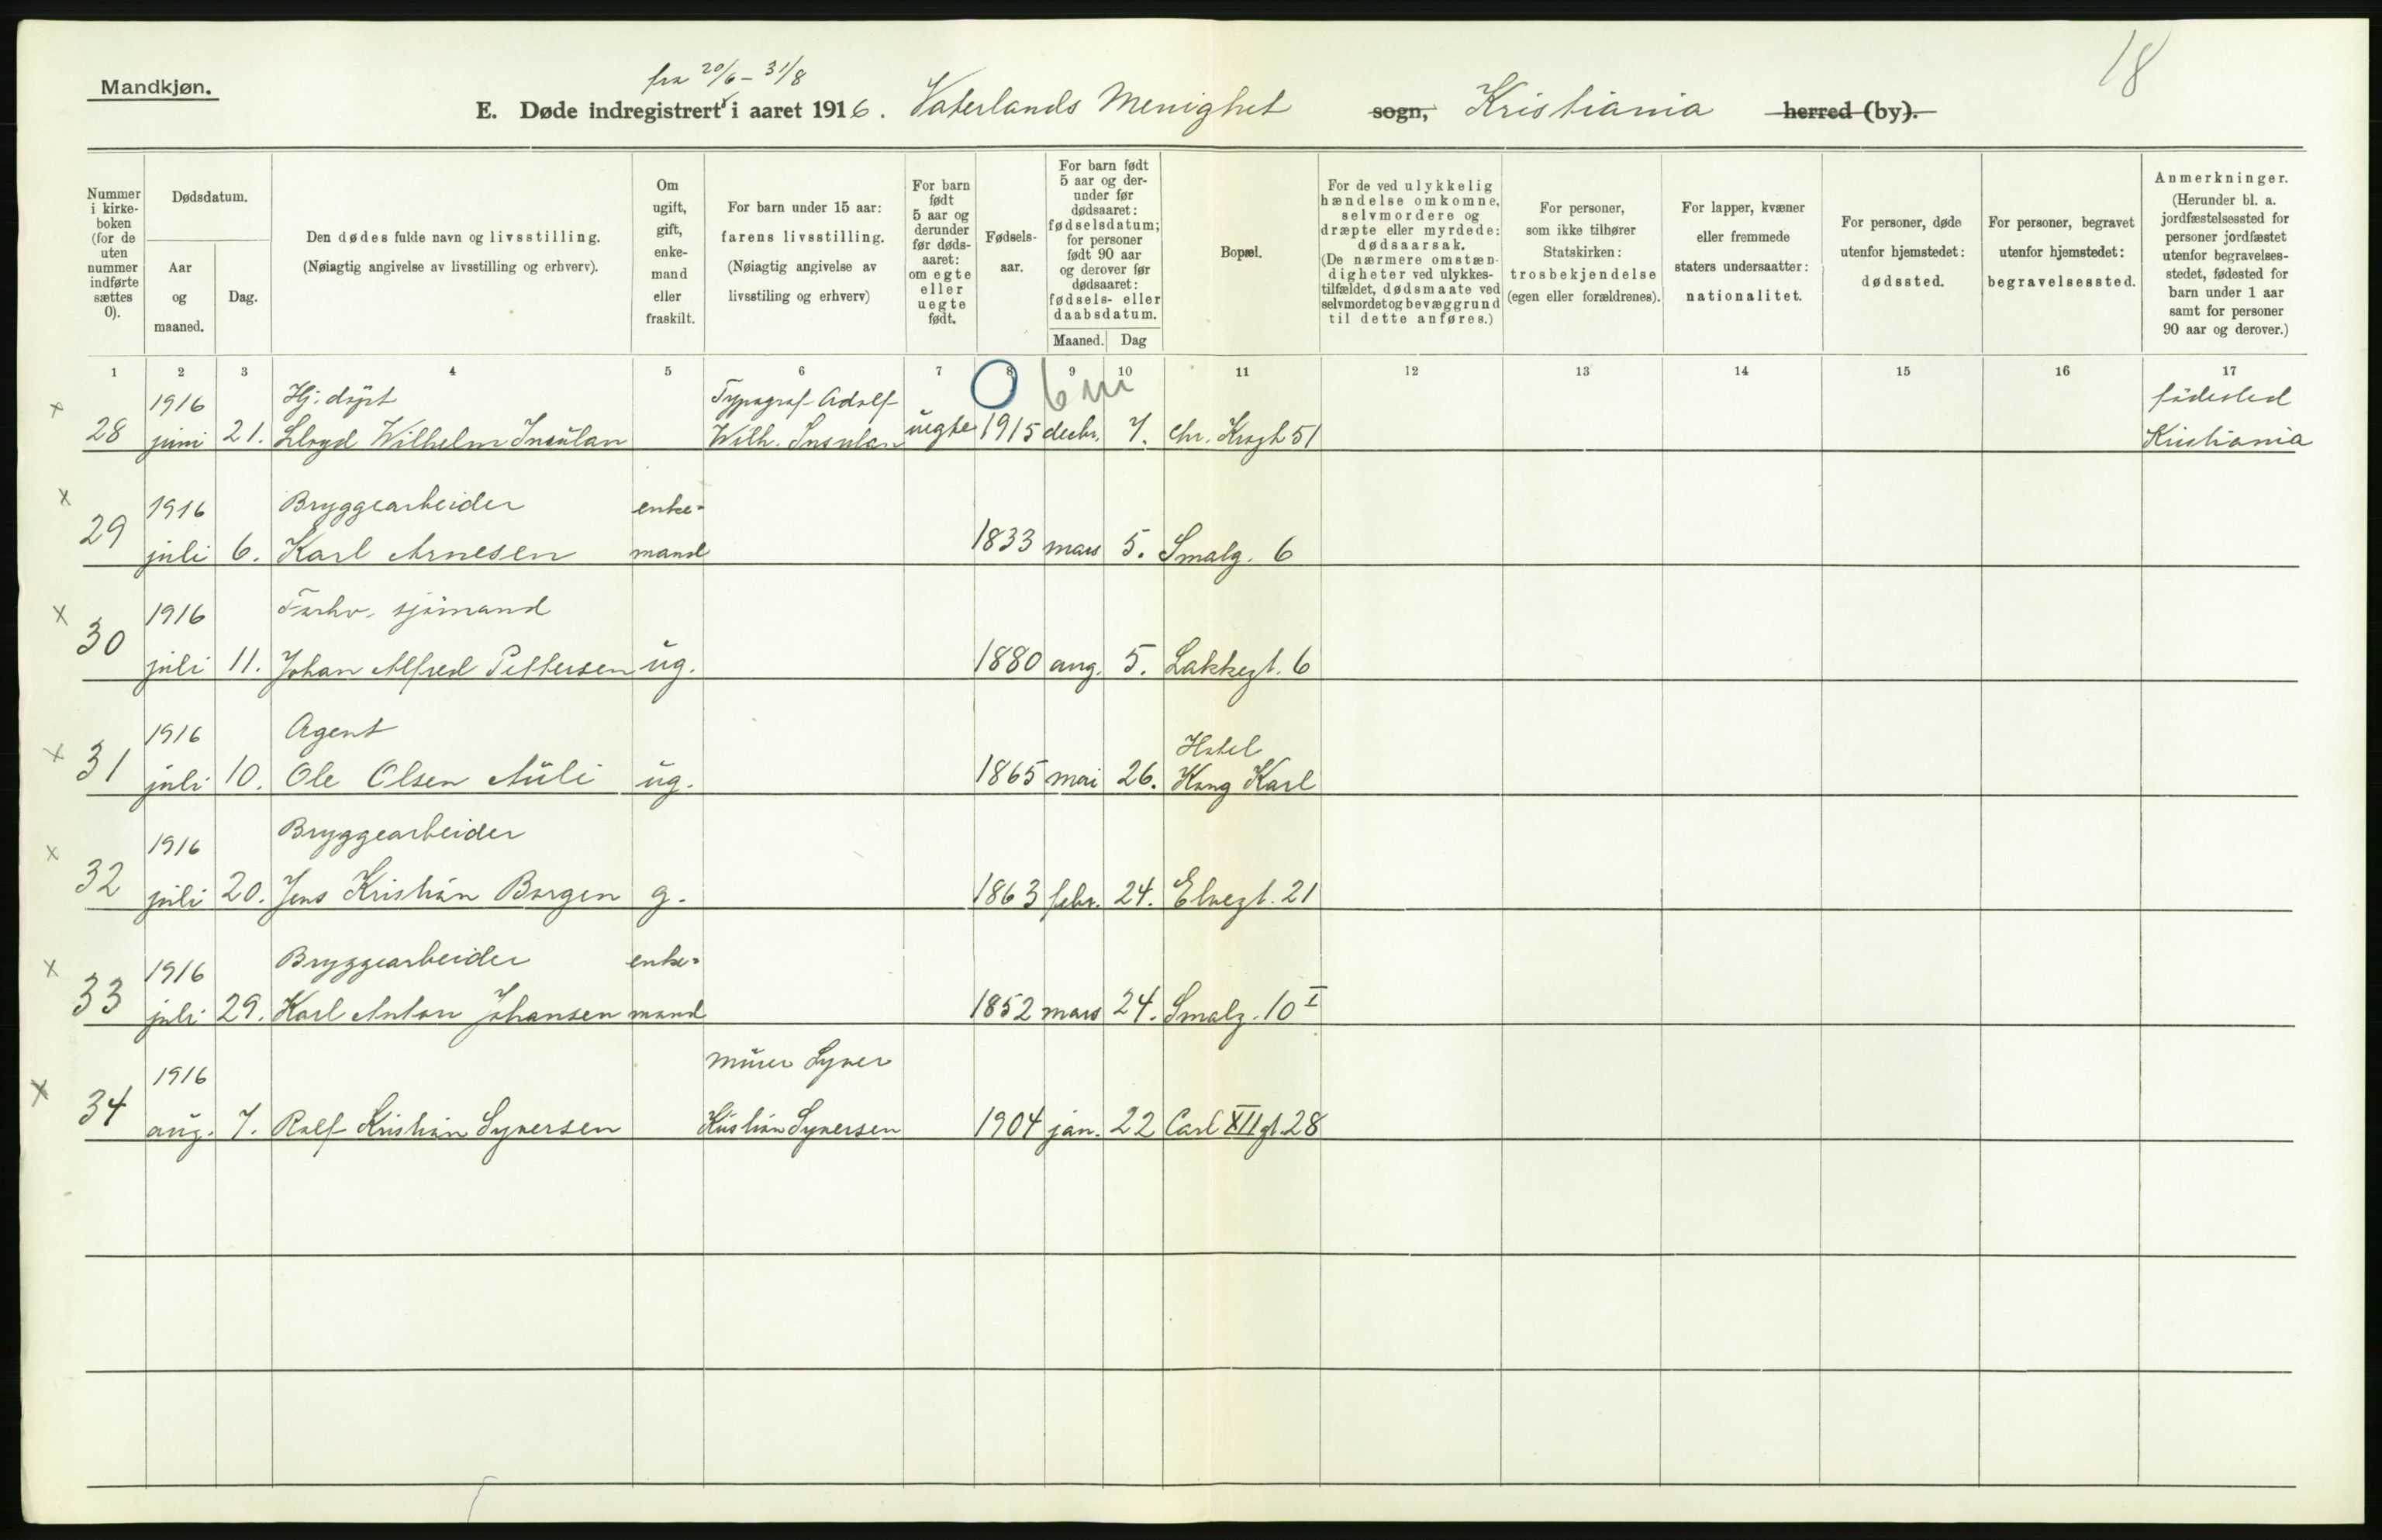 18
Mandkjøn.
fra 20/6 - 31/8
E. Døde indregistrert i aaret 1916. Vaterlands Menighet sogn, Kristiania herred (by).
Nummer i kirke-boken (for de uten nummer indførte sættes 0).
Dødsdatum.
Aar og maaned.
Dag.
Den dødes fulde navn og livsstilling.
(Nøiagtig angivelse av livsstilling og erhverv).
Om ugift, gift, enke-mand eller fraskilt.
For barn under 15 aar:
farens livsstilling.
(Nøiagtig angivelse av
livsstiling og erhverv)
For barn født 5 aar og derunder før døds-aaret: om egte eller uegte født.
Fødsels-aar.
For barn født 5 aar og der-under før dødsaaret: fødselsdatum; for personer født 90 aar og derover før dødsaaret: fødsels- eller daabsdatum.
Maaned. Dag
Bopæl.
For de ved ulykkelig hændelse omkomne, selvmordere og dræpte eller myrdede: dødsaarsak. (De nærmere omstæn-digheter ved ulykkes-tilfældet, dødsmaate ved selvmordet og bevæggrund til dette anføres.)
For personer, som ikke tilhører Statskirken: trosbekjendelse (egen eller forældrenes).
For lapper, kvæner eller fremmede staters undersaatter: nationalitet.
For personer, døde utenfor hjemstedet: dødssted.
For personer, begravet utenfor hjemstedet: begravelsessted.
Anmerkninger.
(Herunder bl. a. jordfæstelsessted for personer jordfæstet utenfor begravelses-stedet, fødested for barn under 1 aar samt for personer 90 aar og derover.)
1 2 3 4 5 6 7 8 9 10 11 12 13 14 15 16 17
0 6 m
x 1916 Hj. døpt Typograf Adolf fødested
28 juni 21. Lloyd Wilhelm Insulan Wilh. Insulan uegte 1915 decbr. 7. Chr. Krogh 51 Kristiania
x 1916 Bryggearbeider enke-
29 juli 6. Karl Arnesen mand 1833 mars 5. Smalg. 6
x 1916 Forhv. sjømand
30 juli 11. Johan Alfred Pettersen ug. 1880 aug. 5. Lakkegt. 6
x 1916 Agent Hotel
31 juli 10. Ole Olsen Auli ug. 1865 mai 26. Kong Karl
x 1916 Bryggearbeider
32 juli 20. Jens Kristian Borgen g. 1863 febr. 24. Elvegt. 21
x 1916 Bryggearbeider enke-
33 juli 29. Karl Anton Johansen mand 1852 mars 24. Smalg. 10 I
x 1916 Murer Syver
34 aug. 7. Rolf Kristian Syversen Kristian Syversen 1904 jan. 22 Carl XII gt. 28